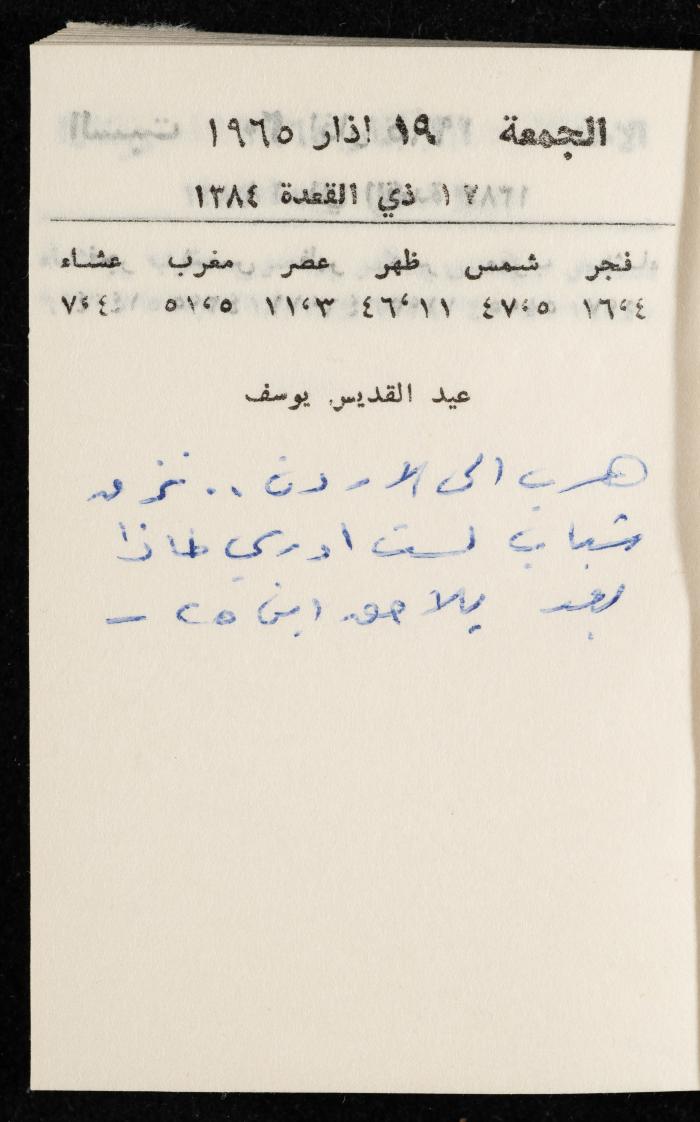 الجمعة ١٩ اذار ١٩٦٥
١٧ ذي القعدة ١٣٨٤
فجر شمس ظهر عصر مغرب عشاء
٤،١٦ ٥،٤٧ ١١،٤٦ ٣،١١ ٥،٥١ ٧،٤
عيد القديس يوسف
هرب الى الاردن ..
شباب لست ادري لماذا
يلاحق ابن —